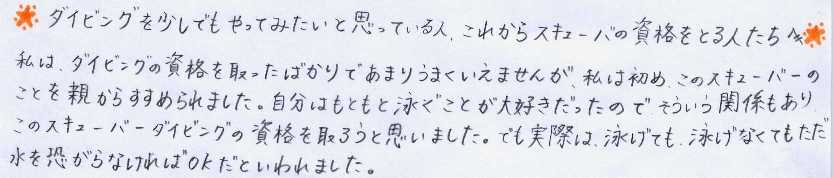 ダイビングを少しでもやってみたいと思っている人、これからスキューバの資格をとる人たちへ
私は、ダイビングの資格を取ったばかりであまりうまくいえませんが、私は初め、このスキューバーの
ことを親からすすめられました。自分はもともと泳ぐことが大好きだったので そういう関係もあり、
このスキューバーダイビングの資格を取ろうと思いました。でも実際は、泳げても、泳げなくてもただ
水を恐がらなければOKだといわれました。